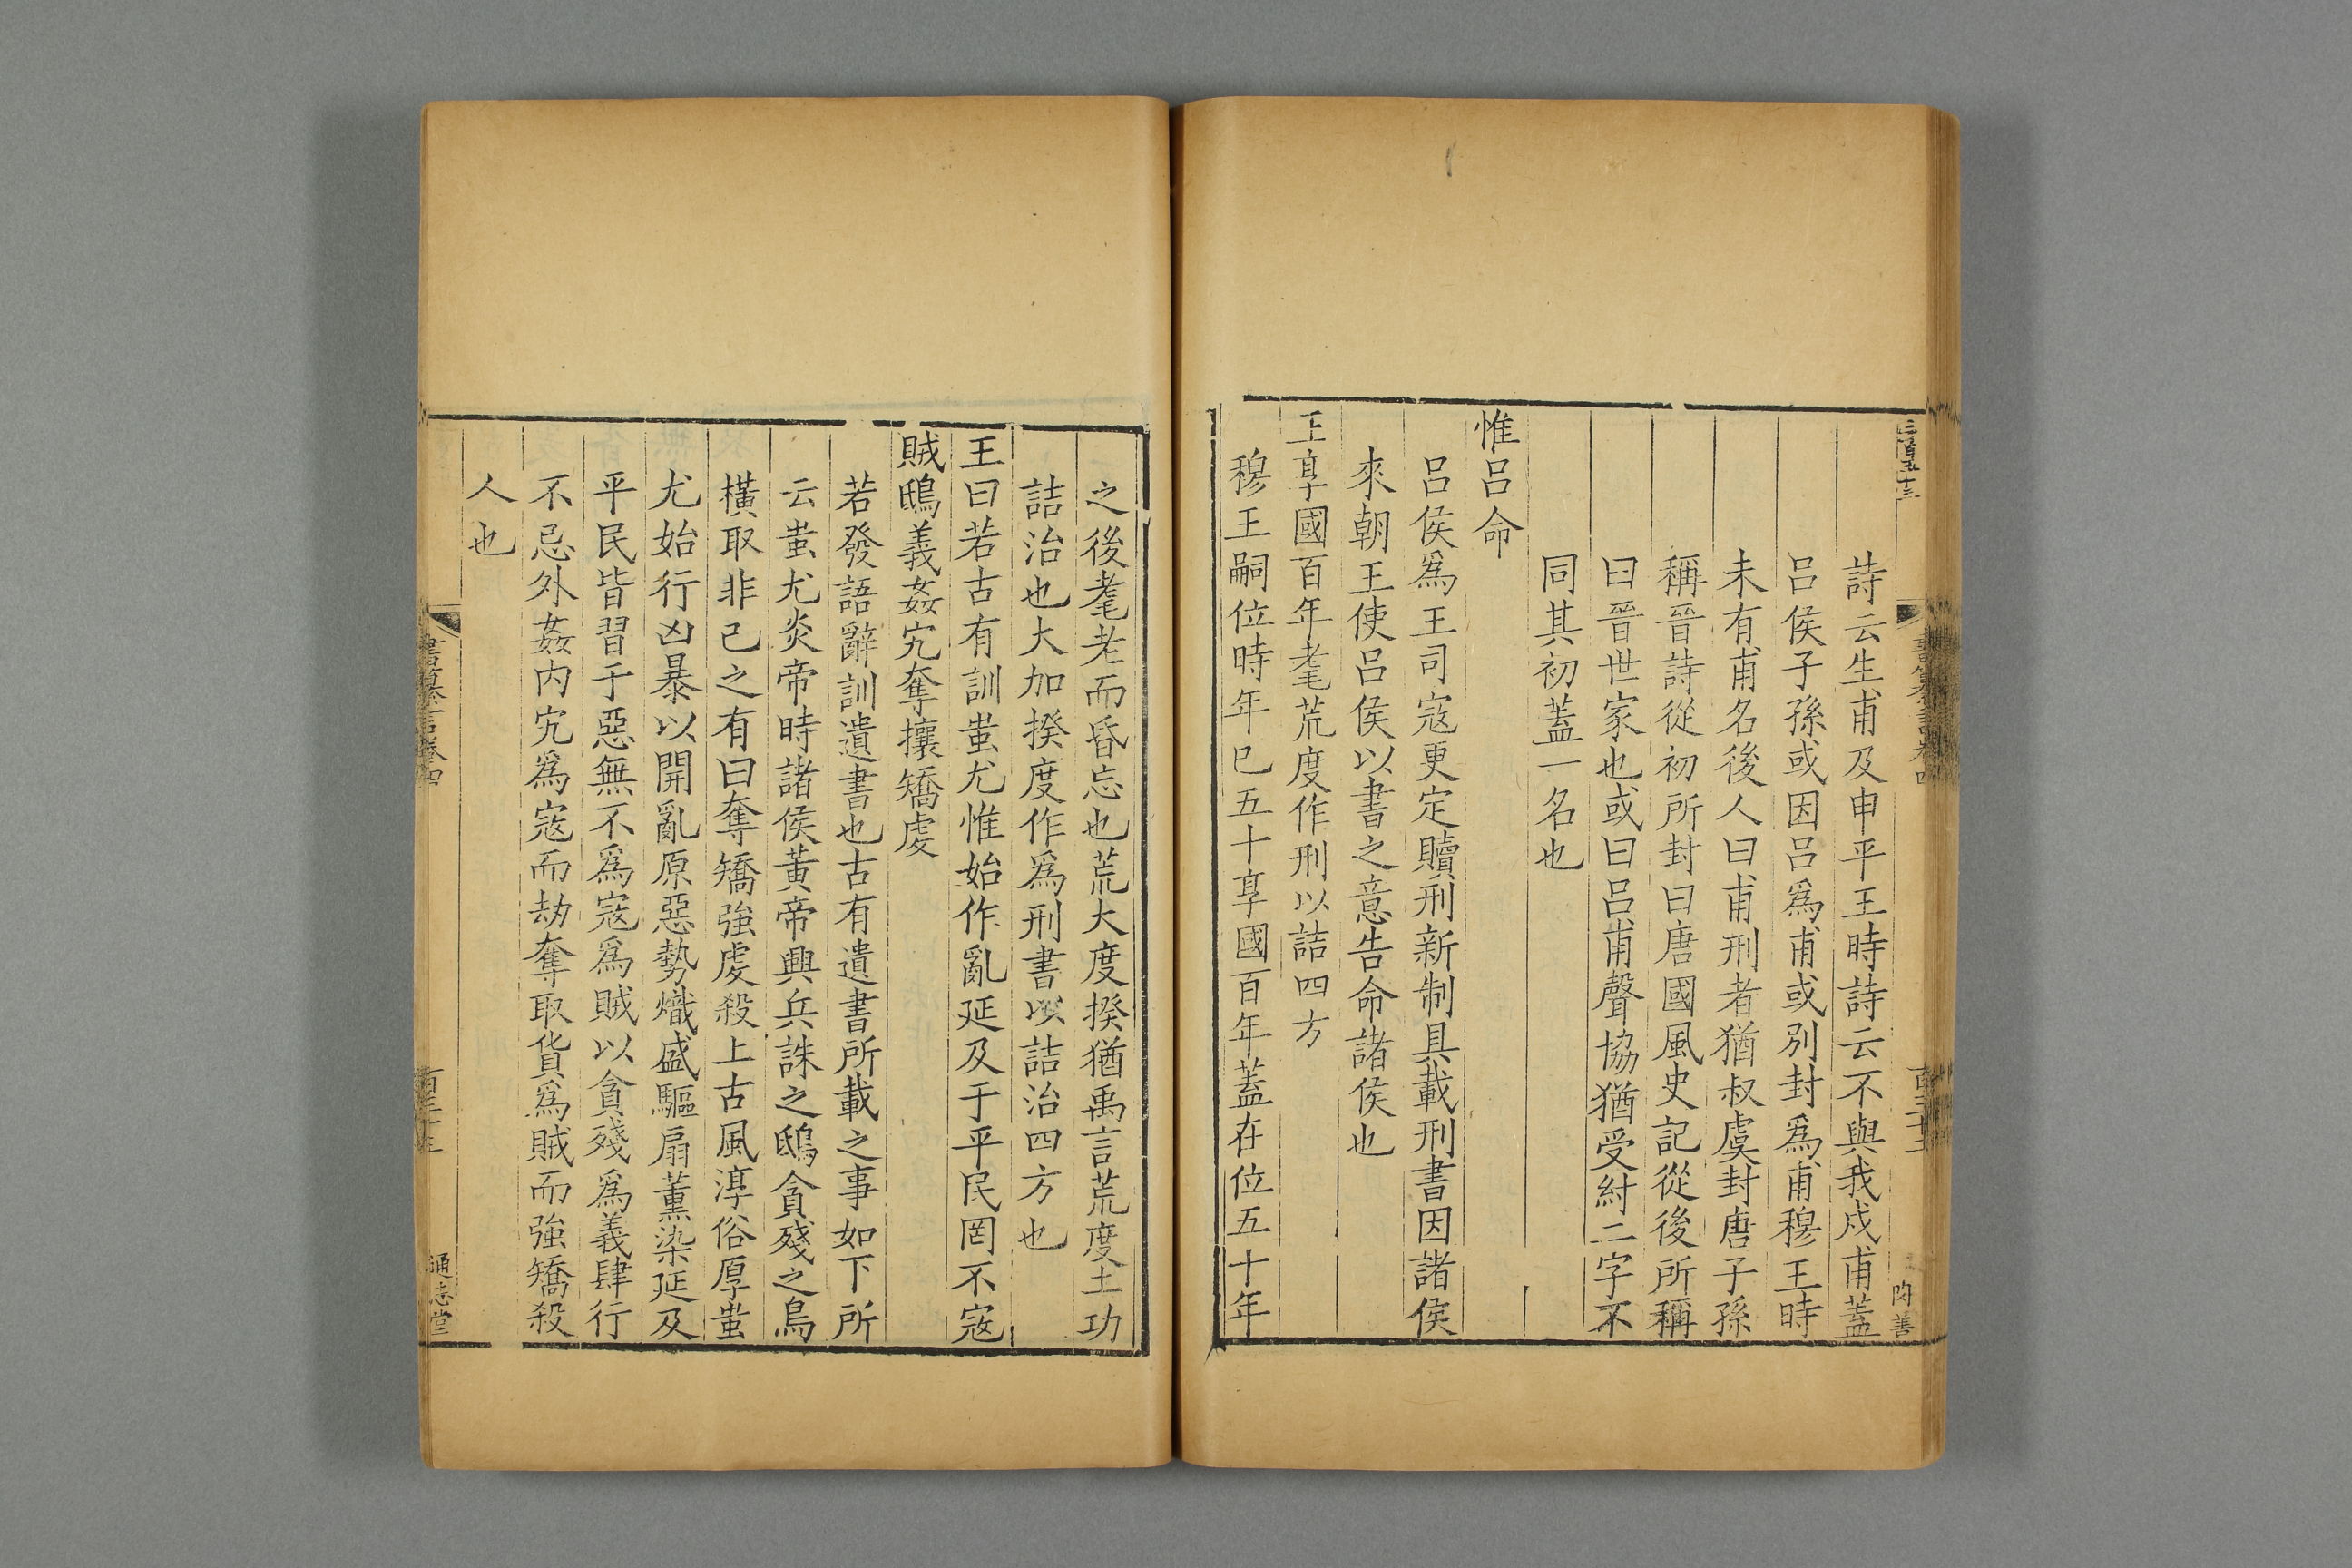 三百五十三
書纂言卷四
百三十三
詩云生甫及申平王時詩云不與我戍甫蓋
呂侯子孫或因呂爲甫或別封爲甫穆王時
未有甫名後人曰甫刑者猶叔虞封唐子孫
稱晉詩從初所封曰唐國風史記從後所稱
曰晉世家也或曰呂甫聲協猶受紂二字不
同其初蓋一名也
惟呂命
呂侯爲王司寇更定贖刑新制具載刑書因諸侯
來朝王使呂侯以書之意告命諸侯也
王享國百年耄荒度作刑以詰四方
穆王嗣位時年已五十享國百年蓋在位五十年
之後耄老而昏忘也荒大度揆猶禹言荒度土功
詰治也大加揆度作爲刑書以詰治四方也
王曰若古有訓蚩尤惟始作亂延及于平民罔不寇
賊鴟義姦宄奪攘矯虔
若發語辭訓遺書也古有遺書所載之事如下所
云蚩尤炎帝時諸侯黃帝興兵誅之鴟貪殘之鳥
橫取非己之有曰奪矯強虔殺上古風淳俗厚蚩
尤始行凶暴以開亂原惡勢熾盛驅扇薰染延及
平民皆習于惡無不爲寇爲賊以貪殘爲義肆行
不忌外姦内宄爲寇而劫奪取貨爲賊而強矯殺
人也
書纂言卷四
通志堂